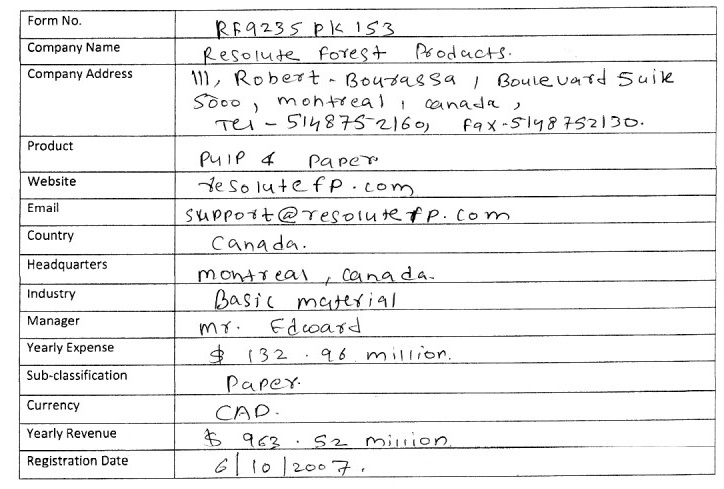 Form No. RF9235 PK 153
Company Name Resolute Forest Products.
Company Address 111, Robert - Bourassa, Boulevard Suite
5000, montreal, canada,
Tel - 5148752160, Fax - 5148752130.
Product Pulp & paper
Website resolutefp.com
Email support@resolutefp.com
Country Canada.
Headquarters montreal, canada.
Industry Basic material
Manager mr. Edward
Yearly Expense $ 132.96 million.
Sub-classification Paper.
Currency CAD.
Yearly Revenue $ 963.52 million
Registration Date 6/10/2007.